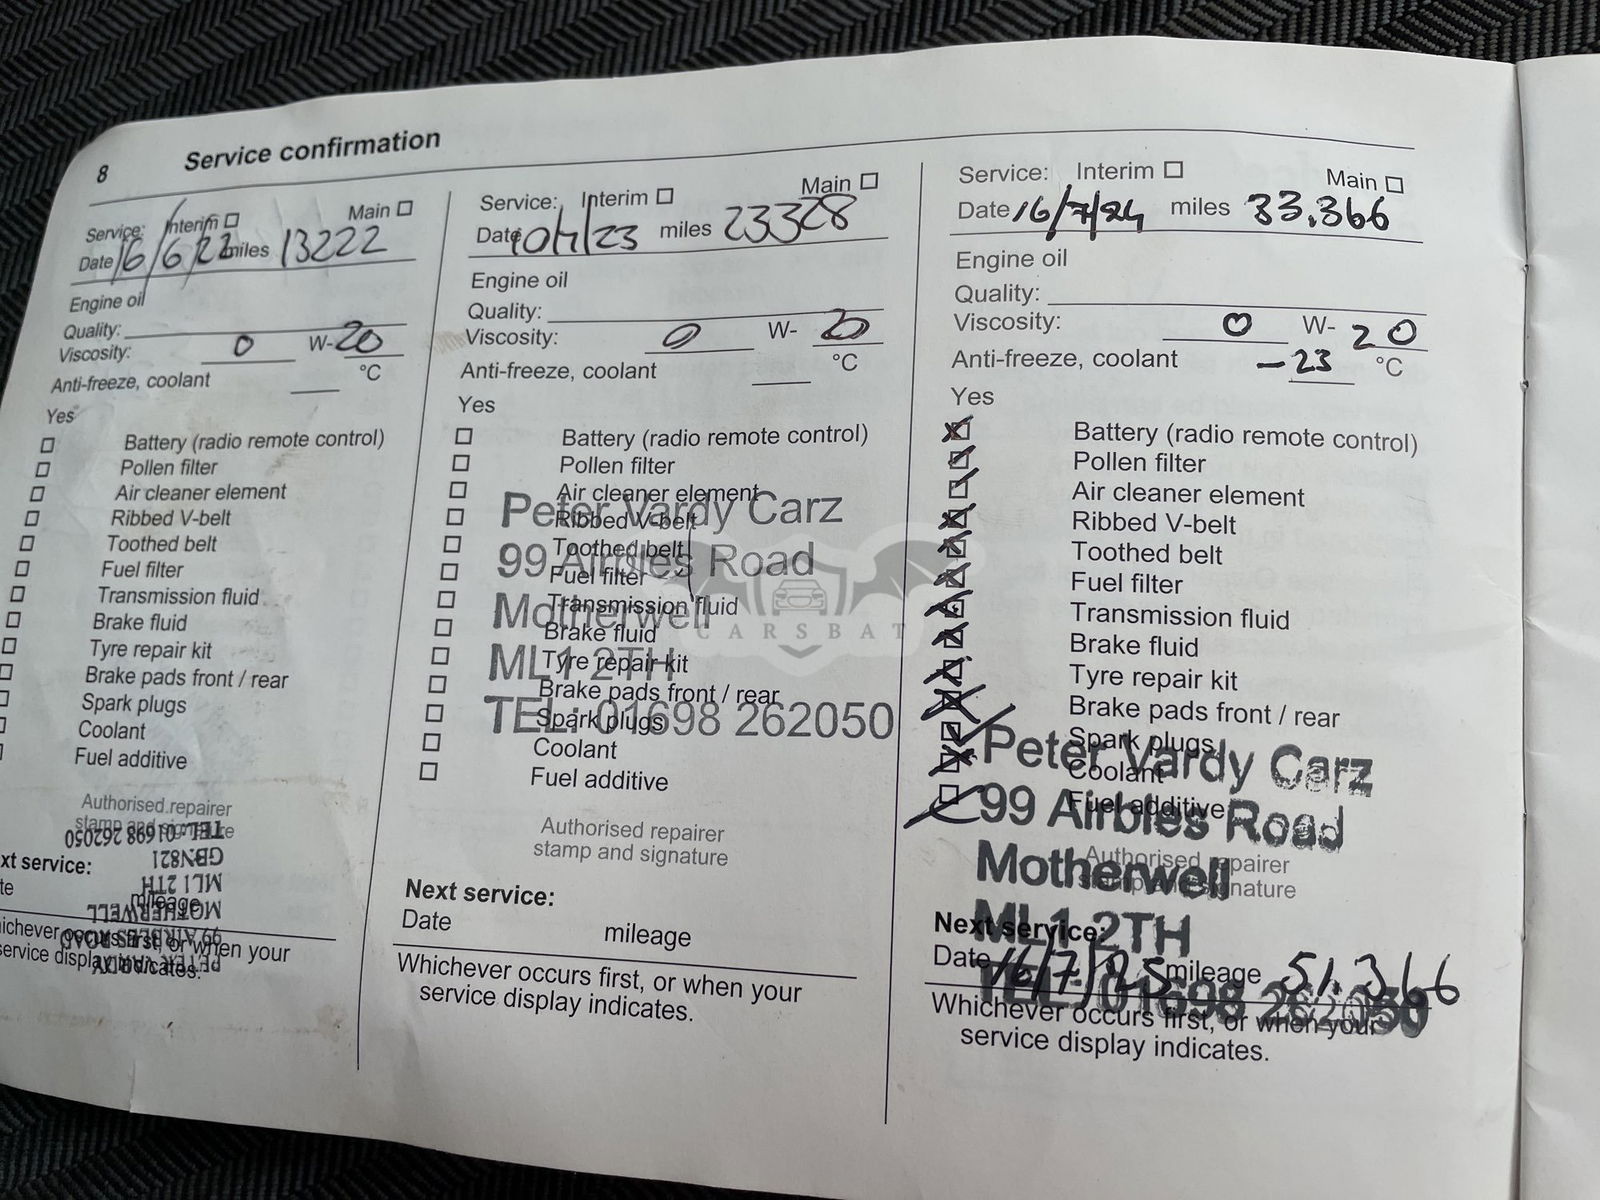 8 Service confirmation
Service: Interim Main
Date 16/6/22 miles 13222
Engine oil
Quality:
Viscosity: 0 W-20
Anti-freeze, coolant °C
Yes
Battery (radio remote control)
Pollen filter
Air cleaner element
Ribbed V-belt
Toothed belt
Fuel filter
Transmission fluid
Brake fluid
Tyre repair kit
Brake pads front / rear
Spark plugs
Coolant
Fuel additive
Authorised repairer
stamp and signature
TEL: 01698 262050
GBN821
ML1 2TH
MOTHERWELL
99 AIRBLES ROAD
PETER VARDY
xt service:
te mileage
ichever occurs first, or when your
service display indicates.
Service: Interim Main
Date 10/7/23 miles 23328
Engine oil
Quality:
Viscosity: 0 W- 20
Anti-freeze, coolant °C
Yes
Battery (radio remote control)
Pollen filter
Air cleaner element
Ribbed V-belt
Toothed belt
Fuel filter
Transmission fluid
Brake fluid
Tyre repair kit
Brake pads front / rear
Spark plugs
Coolant
Fuel additive
Peter Vardy Carz
99 Airbles Road
Motherwell
ML1 2TH
TEL: 01698 262050
Authorised repairer
stamp and signature
Next service:
Date mileage
Whichever occurs first, or when your
service display indicates.
Service: Interim Main
Date 16/7/24 miles 33.366
Engine oil
Quality:
Viscosity: 0 W- 20
Anti-freeze, coolant -23 °C
Yes
Battery (radio remote control)
Pollen filter
Air cleaner element
Ribbed V-belt
Toothed belt
Fuel filter
Transmission fluid
Brake fluid
Tyre repair kit
Brake pads front / rear
Spark plugs
Coolant
Fuel additive
Peter Vardy Carz
99 Airbles Road
Motherwell
ML1 2TH
TEL: 01698 262050
Authorised repairer
stamp and signature
Next service:
Date 16/7/25 mileage 51.366
Whichever occurs first, or when your
service display indicates.
CARSBAT